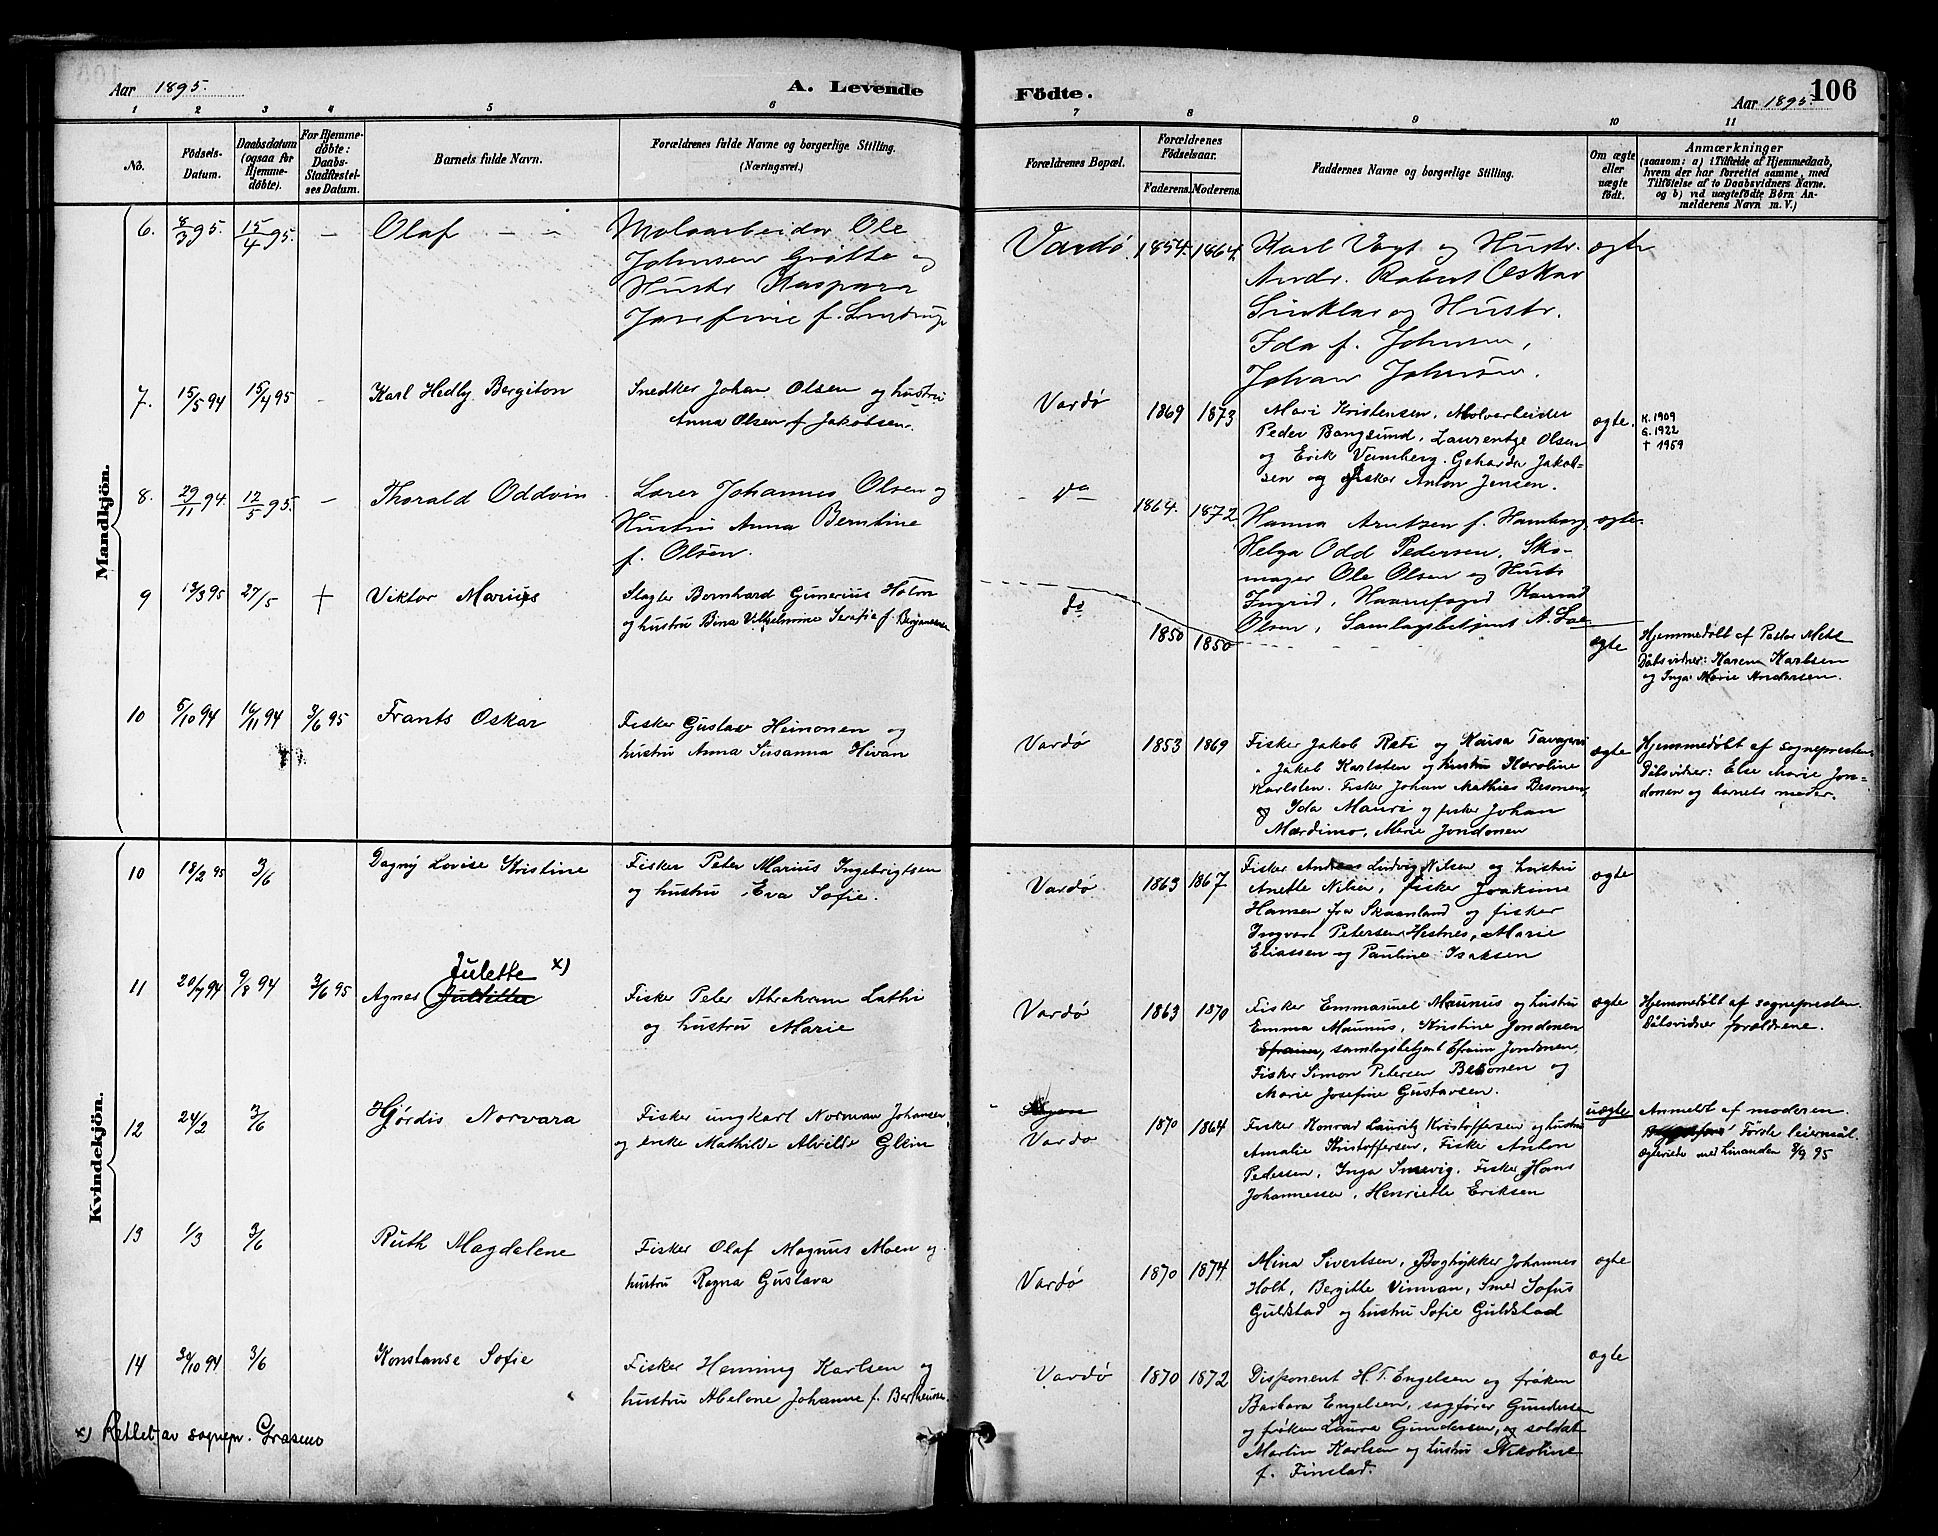 Aar 1895.
A. Levende
Födte.
Aar 1895.
106
1 2 3 4 5 6 7 8 9 10 11
No.
Födsels-
Datum.
Daabsdatum
(ogsaa for
Hjemme-
döbte).
For Hjemme-
döbte:
Daabs-
Stadfæstel-
ses Datum.
Barnets fulde Navn.
Forældrenes fulde Navne og borgerlige Stilling.
(Næringsvei.)
Forældrenes Bopæl.
Forældrenes
Födselsaar.
Faderens. Moderens.
Faddernes Navne og borgerlige Stilling.
Om ægte
eller
uægte
födt.
Anmærkninger
(saasom: a) i Tilfælde af Hjemmedaab,
hvem der har forrettet samme, med
Tilföielse af to Daabsvidners Navne.
og b) ved uægtefödte Börn An-
melderens Navn m. V.)
Mandkjön.
6. 8/3 95. 15/4 95. – Olaf
Moloarbeider Ole
Johnsen Grötte og
Hustr Kaspara
Josefine f.
Vardø 1854. 1864.
Karl Vogt og Hustr.
Andr. Robert Oskar
Sinklar og Hustr.
Ida f. Johnsen,
Johan Johnsen.
ægte
7. 15/5 94 15/4 95 – Karl Hedly Bergiton
Snedker Johan Olsen og hustru
Anna Olsen f. Jakobsen.
Vardø 1869 1873
Mari Kristensen, Moloarbeider
Peder Bangsund, Laurentze Olsen
og Erik Vamberg. Geharda Jakob-
sen og fisker Anton Jensen.
ægte.
K. 1909
G. 1922
† 1959
8. 29/11 94. 12/5 95. – Thorald Oddvin
Lærer Johannes Olsen og
Hustru Anna Berntine
f. Olsen.
do 1864. 1872.
Hanna Arntzen f. Hamborg,
Helga Odd Pedersen, Sko-
mager Ole Olsen og Hustr
Ingrid, Havnefoged Konrad
Olsen, Samlagsbetjent A. Loe
ægte
9 13/3 95 27/5 + Viktor Marius
Slagter Bernhard Gunerius Holm
og hustru Bina Vilhelmine Serafia f. Benjaminsen
do 1850 1850
ægte
Hjemmedøbt af Pastor Mete
Dåbsvidner: Karen Karlsen
og Inga Marie Andersen.
10 5/10 94 16/11 94 3/6 95 Frants Oskar
Fisker Gustav Heinonen og
hustru Anna Susanna Hivan
Vardø 1853 1869
Fisker Jakob Rati og Kaisa Tavajervi
Jakob Karlsten og hustru Karoline
Karlsten. Fisker Johan Mathies Besonen,
og Ida Mauri og fisker Johan
Mærdimo, Marie Jondonen
ægte
Hjemmedøbt af sognepresten
Dåbsvidner: Else Marie Jon-
donen og barnets moder.
Kvindekjön.
10 18/2 95 3/6 Dagny Lovise Kristine
Fisker Peter Marius Ingebrigtsen
og hustru Eva Sofie.
Vardø 1863 1867
Fisker Andreas Ludvig Nilsen og hustru
Anette Nilsen, fisker Joakim
Hansen fra Skaanland og fisker
Ingvart Petersen Hestnes, Marie
Eliassen og Pauline Isaksen
ægte
11 20/7 94 9/8 94 3/6 95 Agnes Julette x)
Fisker Peter Abraham Lathi
og hustru Marie
Vardø 1863 1870
Fisker Emmanuel Maunus og hustru
Emma Maunus, Kristine Jondonen
Efraim, samlagsbetjent Efraim Jondonen,
Fisker Simon Petersen Besonen og
Marie Josefine Gustavsen.
ægte
Hjemmedøbt af sognepresten.
Dåbsvidner forældrene.
12 24/2 3/6 Hjørdis Norvara
Fisker ungkarl Norman Johansen
og enke Mathilde Alvilde Glein
Vardø 1870 1864
Fisker Konrad Lauritz Kristoffersen og hustru
Amalie Kristoffersen, Fisker Anton
Pedersen, Inga Snevig, Fisker Hans
Johannessen, Henriette Eriksen
uægte
Anmeldt af moderen.
Første leiermål.
Ægteviede med hinanden 8/9 95
13 1/3 3/6 Ruth Magdelene
Fisker Olaf Magnus Moen og
hustru Ragna Gustava
Vardø 1870 1874
Mina Sivertsen, Bogtrykker Johannes
Holt, Bergitte Vinman, Smed Sofus
Guldstad og hustru Sofie Guldstad
ægte
14 30/10 94 3/6 Konstanse Sofie
Fisker Henning Karlsen og
hustru Abelone Johanne f. Bertheusen
Vardø 1870 1872
Disponent H.T. Engelsen og frøken
Barbara Engelsen, sagfører Gundersen
og frøken Laura Gundersen, og soldat
Martin Karlsen og hustru Nikoline
f. Finstad.
ægte
x) Rettet av sognepr. Grasmo